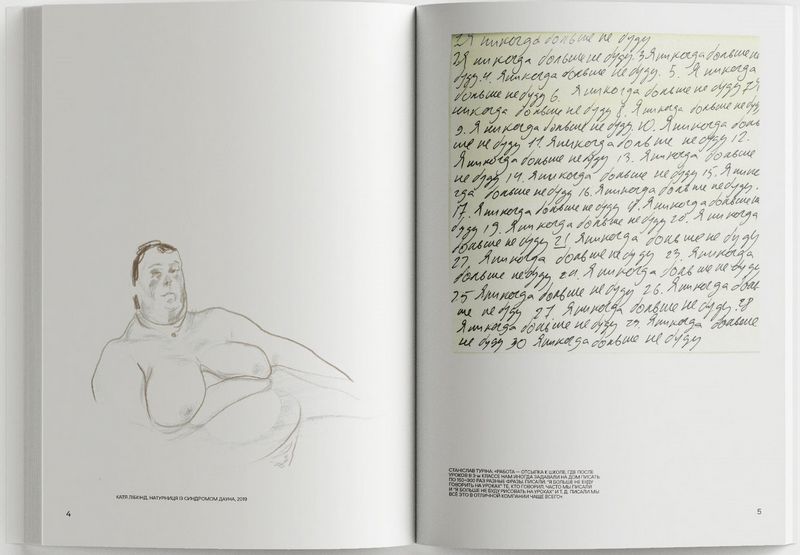 КАТЯ ЛІБКІНД, НАТУРНИЦЯ ІЗ СИНДРОМОМ ДАУНА, 2019
4
1Я никогда больше не буду
2Я никогда больше не буду. 3.Я никогда больше не
буду.4. Я никогда больше не буду. 5. Я никогда
больше не буду 6. Я никогда больше не буду 7.Я
никогда больше не буду 8. Я никогда больше не буду
9. Я никогда больше не буду. 10. Я никогда боль
ше не буду 11. Я никогда больше не буду 12.
Я никогда больше не буду 13. Я никогда больше
не буду 14. Я никогда больше не буду 15. Я нико
гда больше не буду 16. Я никогда больше не буду.
17. Я никогда больше не буду 18. Я никогда больше не
буду 19. Я никогда больше не буду 20. Я никогда
больше не буду 21 Я никогда больше не буду
22. Я никогда больше не буду 23. Я никогда
больше не буду 24. Я никогда больше не буду
25 Я никогда больше не буду 26. Я никогда боль
ше не буду 27. Я никогда больше не буду .28
Я никогда больше не буду 29. Я никогда больше
не буду 30 Я никогда больше не буду
СТАНІСЛАВ ТУРІНА: «РАБОТА — ОТСЫЛКА К ШКОЛЕ, ГДЕ ПОСЛЕ
УРОКОВ В 3-м КЛАССЕ НАМ ИНОГДА ЗАДАВАЛИ НА ДОМ ПИСАТЬ
ПО 150–300 РАЗ РАЗНЫЕ ФРАЗЫ. ПИСАЛИ: "Я БОЛЬШЕ НЕ БУДУ
ГОВОРИТЬ НА УРОКАХ" ТЕ, КТО ГОВОРИЛ. ЧАСТО МЫ ПИСАЛИ
И "Я БОЛЬШЕ НЕ БУДУ РИСОВАТЬ НА УРОКАХ" И Т. Д. ПИСАЛИ МЫ
ВСЁ ЭТО В ОТЛИЧНОЙ КОМПАНИИ ЧАЩЕ ВСЕГО».
5